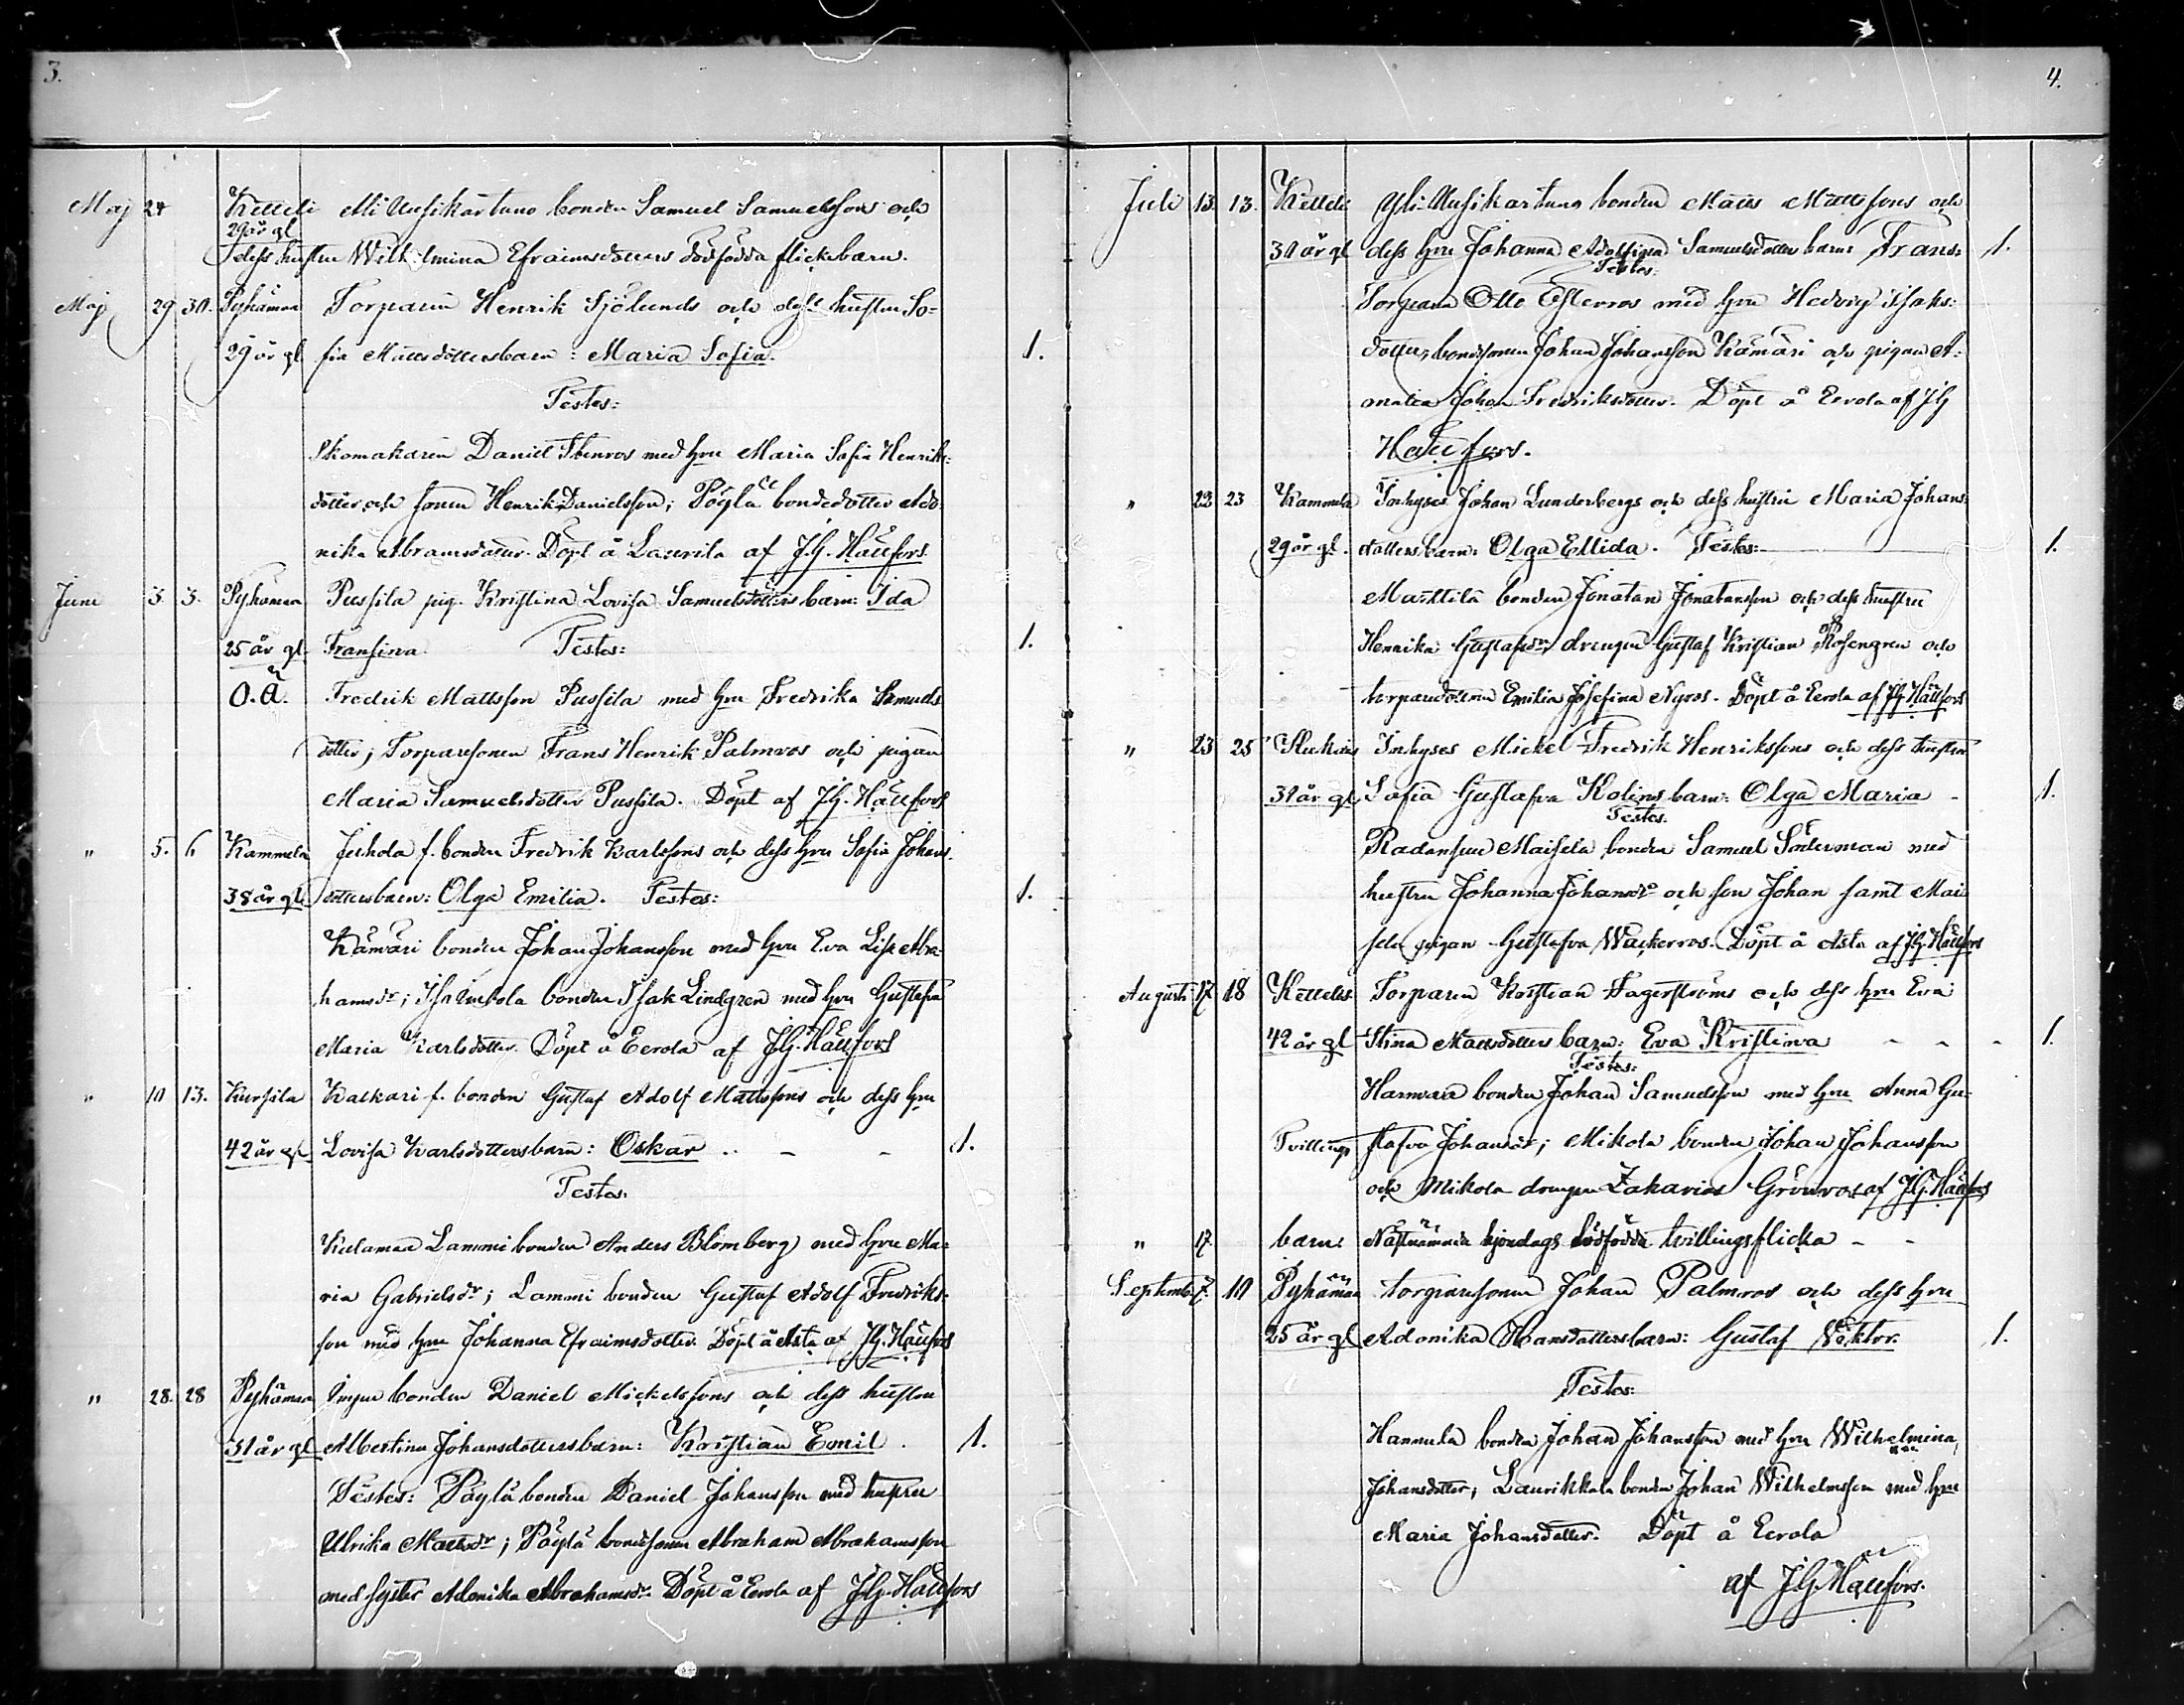 3.
Maj 24 Ketteli Ali Uusikartano bonden Samuel Samuelssons och
29 år gl
dess hustru Wilhelmina Efraimsdotters dödfödda flickebarn.
Maj 29 30. Pyhämaa Torparen Henrik Sjölunds och dess hustru So=
29 år gl fia Mattsdotters barn: Maria Sofia. 1.
Testes:
Skomakaren Daniel Stenros med hru Maria Sofia Henriks=
dotter och sonen Henrik Danielsson; Pöylä bondedotter Ado
nika Abramsdotter. Döpt å Laurila af J.G. Hällfors
Juni 3. 3. Pyhämaa Pussila pig. Kristina Lovisa Samuelsdotters barn: Ida
25 år gl. Fransina. Testes: 1.
O.Ä. Fredrik Mattsson Pussila med hru Fredrika Samuels
dotter; Torparesonen Frans Henrik Palmros och pigan
Maria Samuelsdotter Pussila. Döpt af J.G. Hällfors
" 5. 6 Kammela f. bonden Fredrik Karlssons och dess hru Sofia Johans
38 år gl dotters barn: Olga Emilia. Testes: 1.
Kämäri bonden Johan Johansson med hru Eva Lisa Abra=
hamsdr; bonden Isak Lindgren med hru Gustafva
Maria Karlsdotter. Döpt å Eerola af J.G. Hällfors
" 10 13. Kursila Kalkari f. bonden Gustaf Adolf Mattssons och dess hru
42 år gl Lovisa Karlsdotters barn: Oskar 1.
Testes.
Kulamaa Lammi bonden Anders Blomberg med hru Ma=
ria Gabrielsdr; Lammi bonden Gustaf Adolf Fredriks=
son med hru Johanna Efraimsdotter. Döpt å Asta af J.G. Hällfors
" 28. 28 Pyhämaa bonden Daniel Mickelssons och dess hustru
31 år gl Albertina Johansdotters barn: Kristian Emil. 1.
Testes: Pöylä bonden Daniel Johansson med hustru
Ulrika Mattsdr; Pöylä bondesonen Abraham Abrahamsson
med syster Adonika Abrahamsdr. Döpt å Eerola af J.G. Hällfors
4.
Juli 13. 13. Ketteli Yli-Uusikartano bonden Matts Mattssons och
31 år gl dess hru Johanna Adolfina Samuelsdotters barn: Frans 1.
Testes:
Torparen Otto Esterros med hru Hedvig Isaks=
dotter, bondsonen Johan Johansson Kämäri och pigan A=
malia Johan Fredriksdotter. Döpt å Eerola af J.G
Hällfors.
" 22 23 Kammela Inhyses Johan Lunderbergs och dess hustru Maria Johans
29 år gl. dotters barn: Olga Ellida. Testes: 1.
Mattila bonden Jonatan Jonatansson och dess hustru
Henrika Gustafsdr, drengen Gustaf Kristian Rosengren och
torparedottren Emilia Josefina Nyros. Döpt å Eerola af J.G Hällfors
" 23 25 Inhyses Mickel Fredrik Henrikssons och dess hustru
31 år gl Sofia Gustafva Kolins barn: Olga Maria 1.
Testes.
Radansuu Maisela bonden Samuel Söderman med
hustru Johanna Johansdr och son Johan samt Mai
sela pigan Gustafva Wackerros. Döpt å Asta af J.G. Hällfors
Augusti 17 18 Ketteli Torparen Kristian Fagerströms och dess hru Eva
42 år gl Stina Mattsdotters barn: Eva Kristina 1.
Testes:
bonden Johan Samuelsson med hru Anna Gu=
Tvillings stafva Johansdr; Mikola bonden Johan Johansson
och Mikola drengen Zakarias Grönroos af J.G. Hällfors
" 17. barn Nästnämnda hjonelags dödfödda tvillingsflicka
Septemb. 7. 10 Pyhämaa torparesonen Johan Palmros och dess hru
25 år gl Adonika Hansdotters barn: Gustaf Viktor. 1.
Testes:
Hannula bonden Johan Johansson med hru Wilhelmina
Johansdotter; Laurikkala bonden Johan Wilhelmsson med hru
Maria Johansdotter. Döpt å Eerola
af J.G. Hällfors.